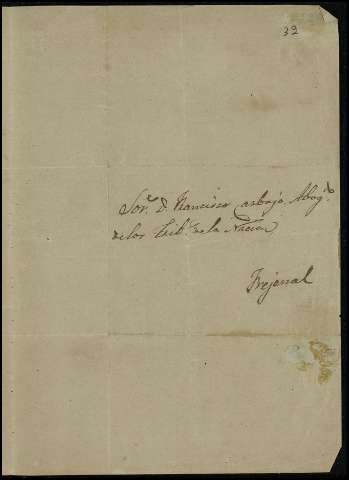 32
Sor. D. Francisco Arbojo Abog.do
de los Trib.s de la Nacion
Frejenal